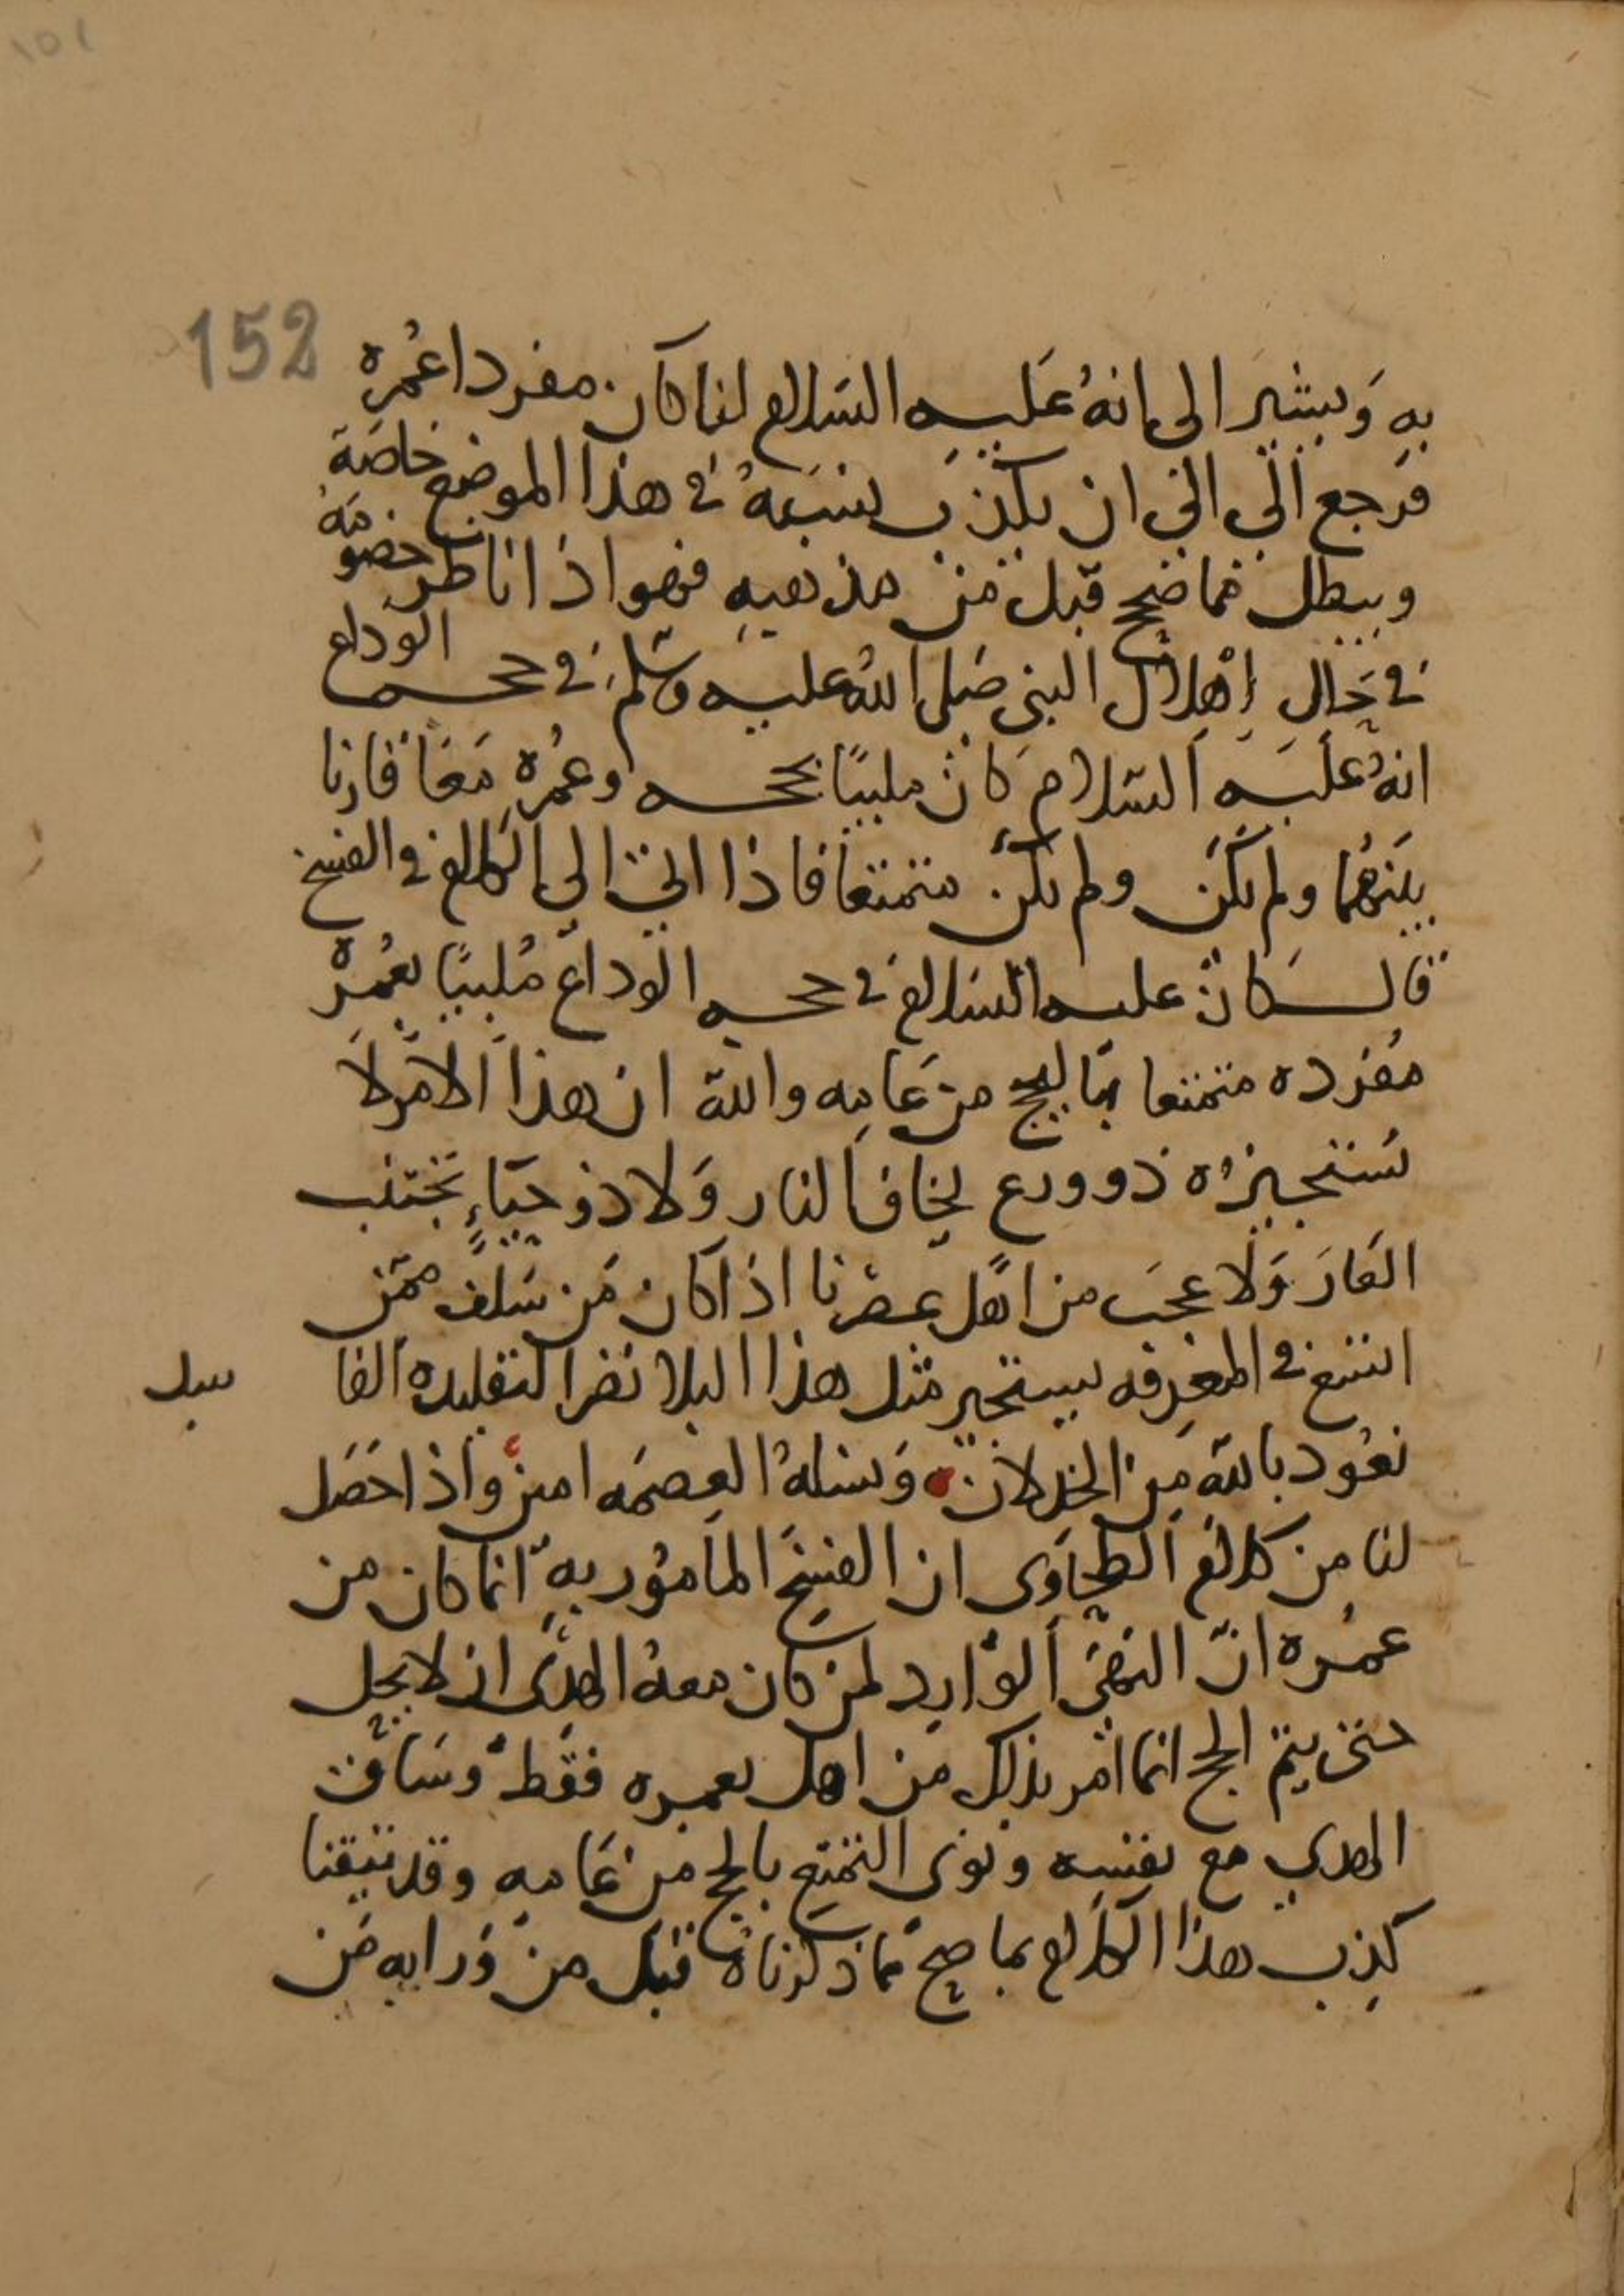 152
به ويشير الى انهُ عَليه السلام لنا كان مفردا عُمره
فرجع الى الى ان يكذب نفسهُ في هذا الموضع خاصَة
ويبطل مما صح قبل من مذهبه فهو اذا ناظر خصومَهُ
في حَالِ إهْلال النبى صَلى اللهُ عليه وسَلم في حجه الوَداع
انهُ عَليَه السَلام كان ملبيًا بحجه وعُمْره مَعًا قارنا
بينهُما ولم يكن ولم يكن متمتعا فاذا اتى الى الكلام في الفسخ
قال كان عليه السَلام في حجه الوداع مُلبيًا بعُمرْه
مُفرده متمتعا بها للحج من عَامِه والله ان هذا الامرْ لا
يَستجيزهُ ذو ورع يخاف النار وَلا ذو حيَاءٍ يجتنب
العَارَ وَلا عجبَ من اهل عصْرنا اذا كان مَن سَلف ممَن
اتسَع في المعْرفه يستجير مثل هذا البلا نصْرا لتقليده الفا
سد
نعُوذ بالله مِن الخذلان وَنسَلهُ العِصمَه امين واذا حَصَل
لنا من كلام الطحاوى ان الفسْخَ المامُور به انما كان من
عمْره انّ النهَى الوَارِد لمن كان معهُ الهدْى ان لا يحِل
حتى يتم الحج انما اُمر بذلك من اهل بعمره فقط وسَاق
الهدي مع نفسِه ونوى التمتع بالحج من عَامِه وقد تيقنا
كذِب هذا الكلام بما صح مما ذكرناهُ قبَل من وَرايه من